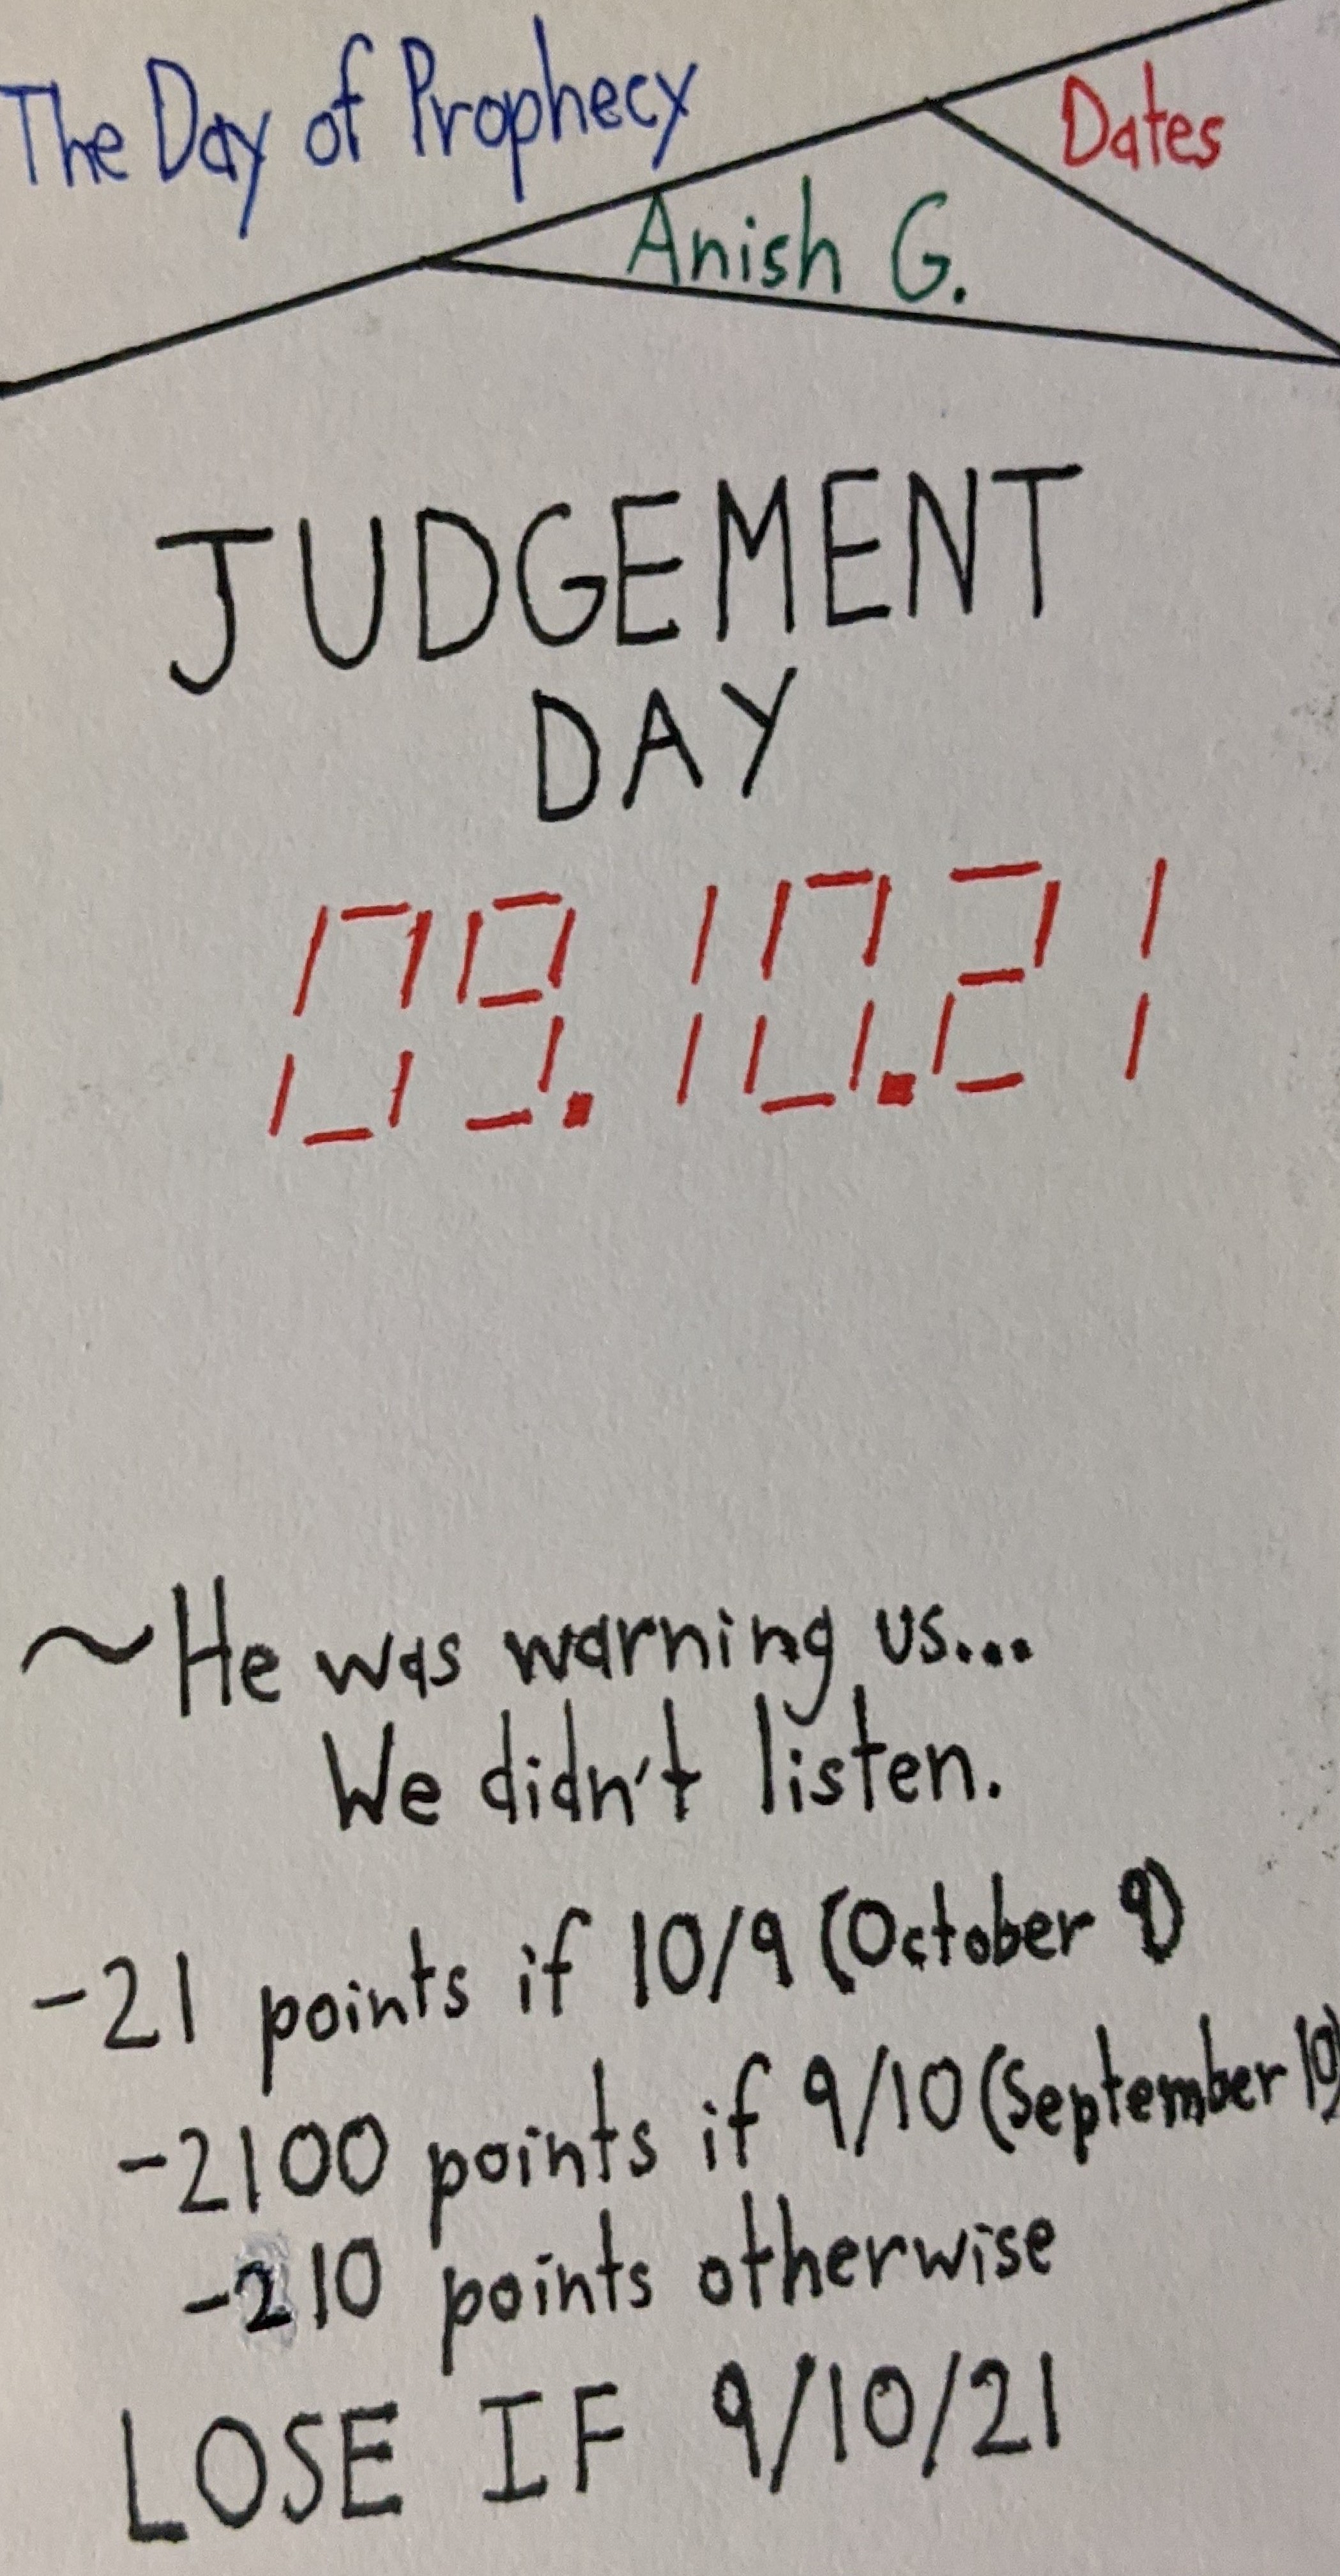 The Day of Prophecy
Anish G.
Dates
JUDGEMENT
DAY
09.10.21
~He was warning us...
We didn't listen.
-21 points if 10/9 (October 9)
-2100 points if 9/10 (September 10)
-210 points otherwise
LOSE IF 9/10/21